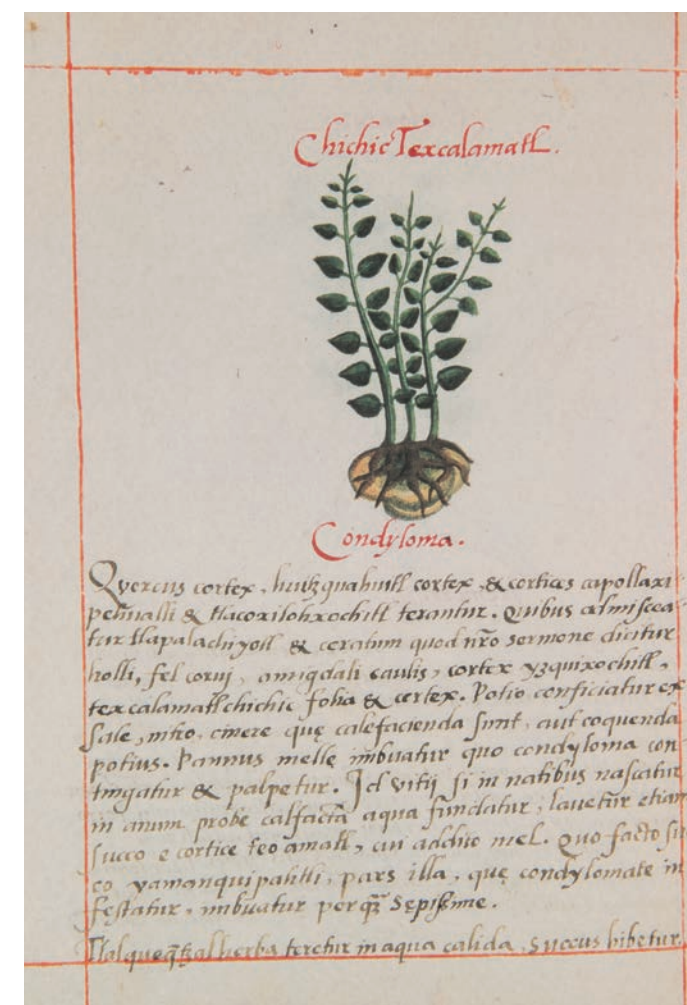 Chichic Texcalamatl.
Condyloma.
Quercus cortex, huitzquahuitl cortex, & cortices capollaxi-
pehualli & tlacoxilohxochitl terantur. quibus admiscea-
tur tlapalachiyotl & ceratum quod nr̄o sermone dicitur
holli, fel corui, amigdali caulis, cortex yzquixochitl,
texcalamatl chichic folia & cortex. Potio conficiatur ex
sale, nitro, cinere quę calefacienda sunt, aut coquenda
potius. Pannus melle imbuatur quo condyloma con-
tingatur & palpetur. Id vitij si in natibus nascatur
in anum probe calfacta aqua fundatur, lauetur etiam
succo e cortice teoamatl, cui addito mel. Quo facto suc
co yamanquipahtli, pars illa, quę condylomate in
festatur, imbuatur perq̃ sępissime.
Tlalqueq̃tzal herba teretur in aqua calida, succus bibetur